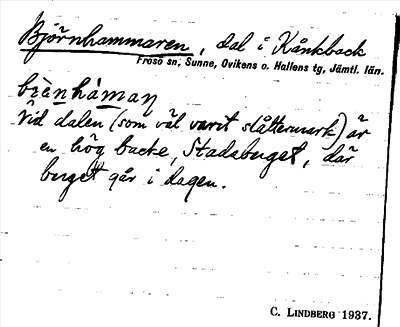 Björnhammaren, dal i Kånkback
Frösö sn, Sunne, Ovikens o. Hallens tg, Jämtl. län.
bi̯ènhàmaɳ
Vid dalen (som väl varit slåttermark) är
en hög backe, Stadsberget, där
berget går i dagen.
C. LINDBERG 1937.